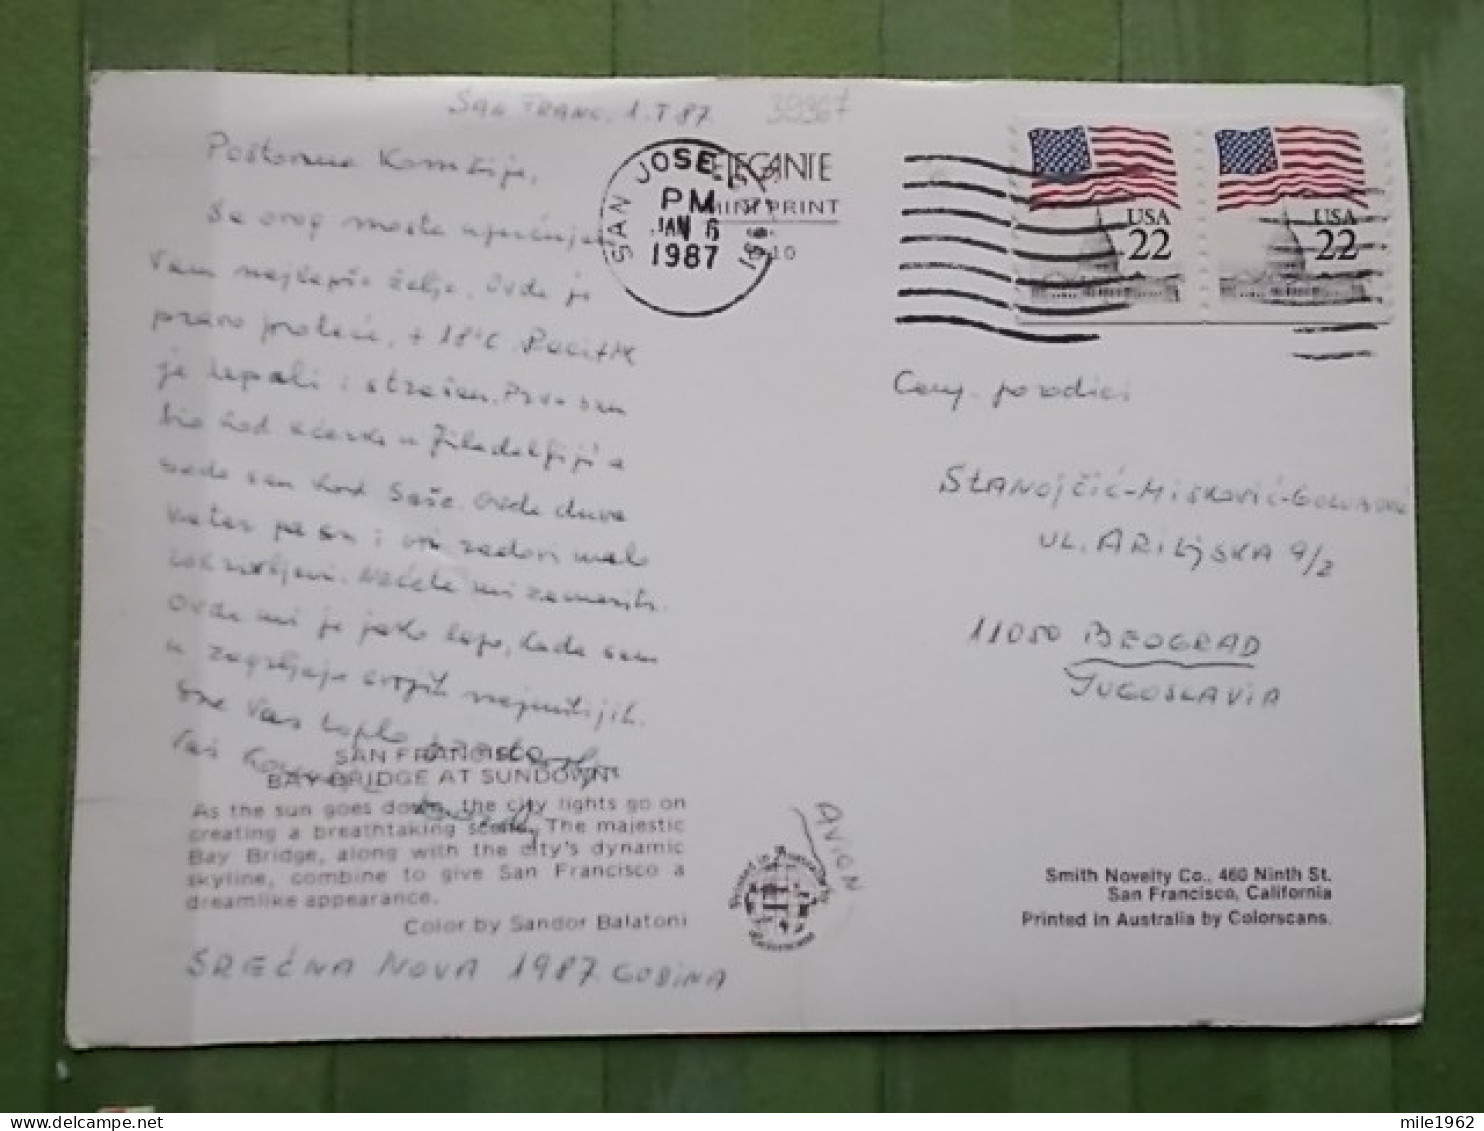 SAN FRANC. 1. I 87.
39367
Poštovane Komšije,
Sa ovog mosta upućujem
Vam najlepše želje. Ovde je
pravo proleće, + 18°C. Pacifik
je lepši i strašan. Prvo sam
bio kod ćerke u Filadelfiji a
sada sam kod Saše. Ovde duva
vetar pa su i ovi redovi malo
zakrivljeni. Nećete mi zameriti.
Ovde mi je jako lepo, kada sam
u zagrljaju svojih najmilijih.
Sve Vas toplo
Vaš
SAN FRANCISCO
BAY BRIDGE AT SUNDOWN
As the sun goes down, the city lights go on
creating a breathtaking scene. The majestic
Bay Bridge, along with the city's dynamic
skyline, combine to give San Francisco a
dreamlike appearance.
Color by Sandor Balatoni
SREĆNA NOVA 1987. GODINA
SAN JOSE
PM
JAN 6
1987
951
ELEGANTE
MINI PRINT
10
USA
22
USA
22
Cenj. porodici
STANOJČIĆ-MISKOVIĆ-GOLUBOVIĆ
UL. ARILJSKA 9/2
11050 BEOGRAD
JUGOSLAVIA
AVION
Printed in Australia by
Colorscans
Smith Novelty Co., 460 Ninth St.
San Francisco, California
Printed in Australia by Colorscans.
mile1962